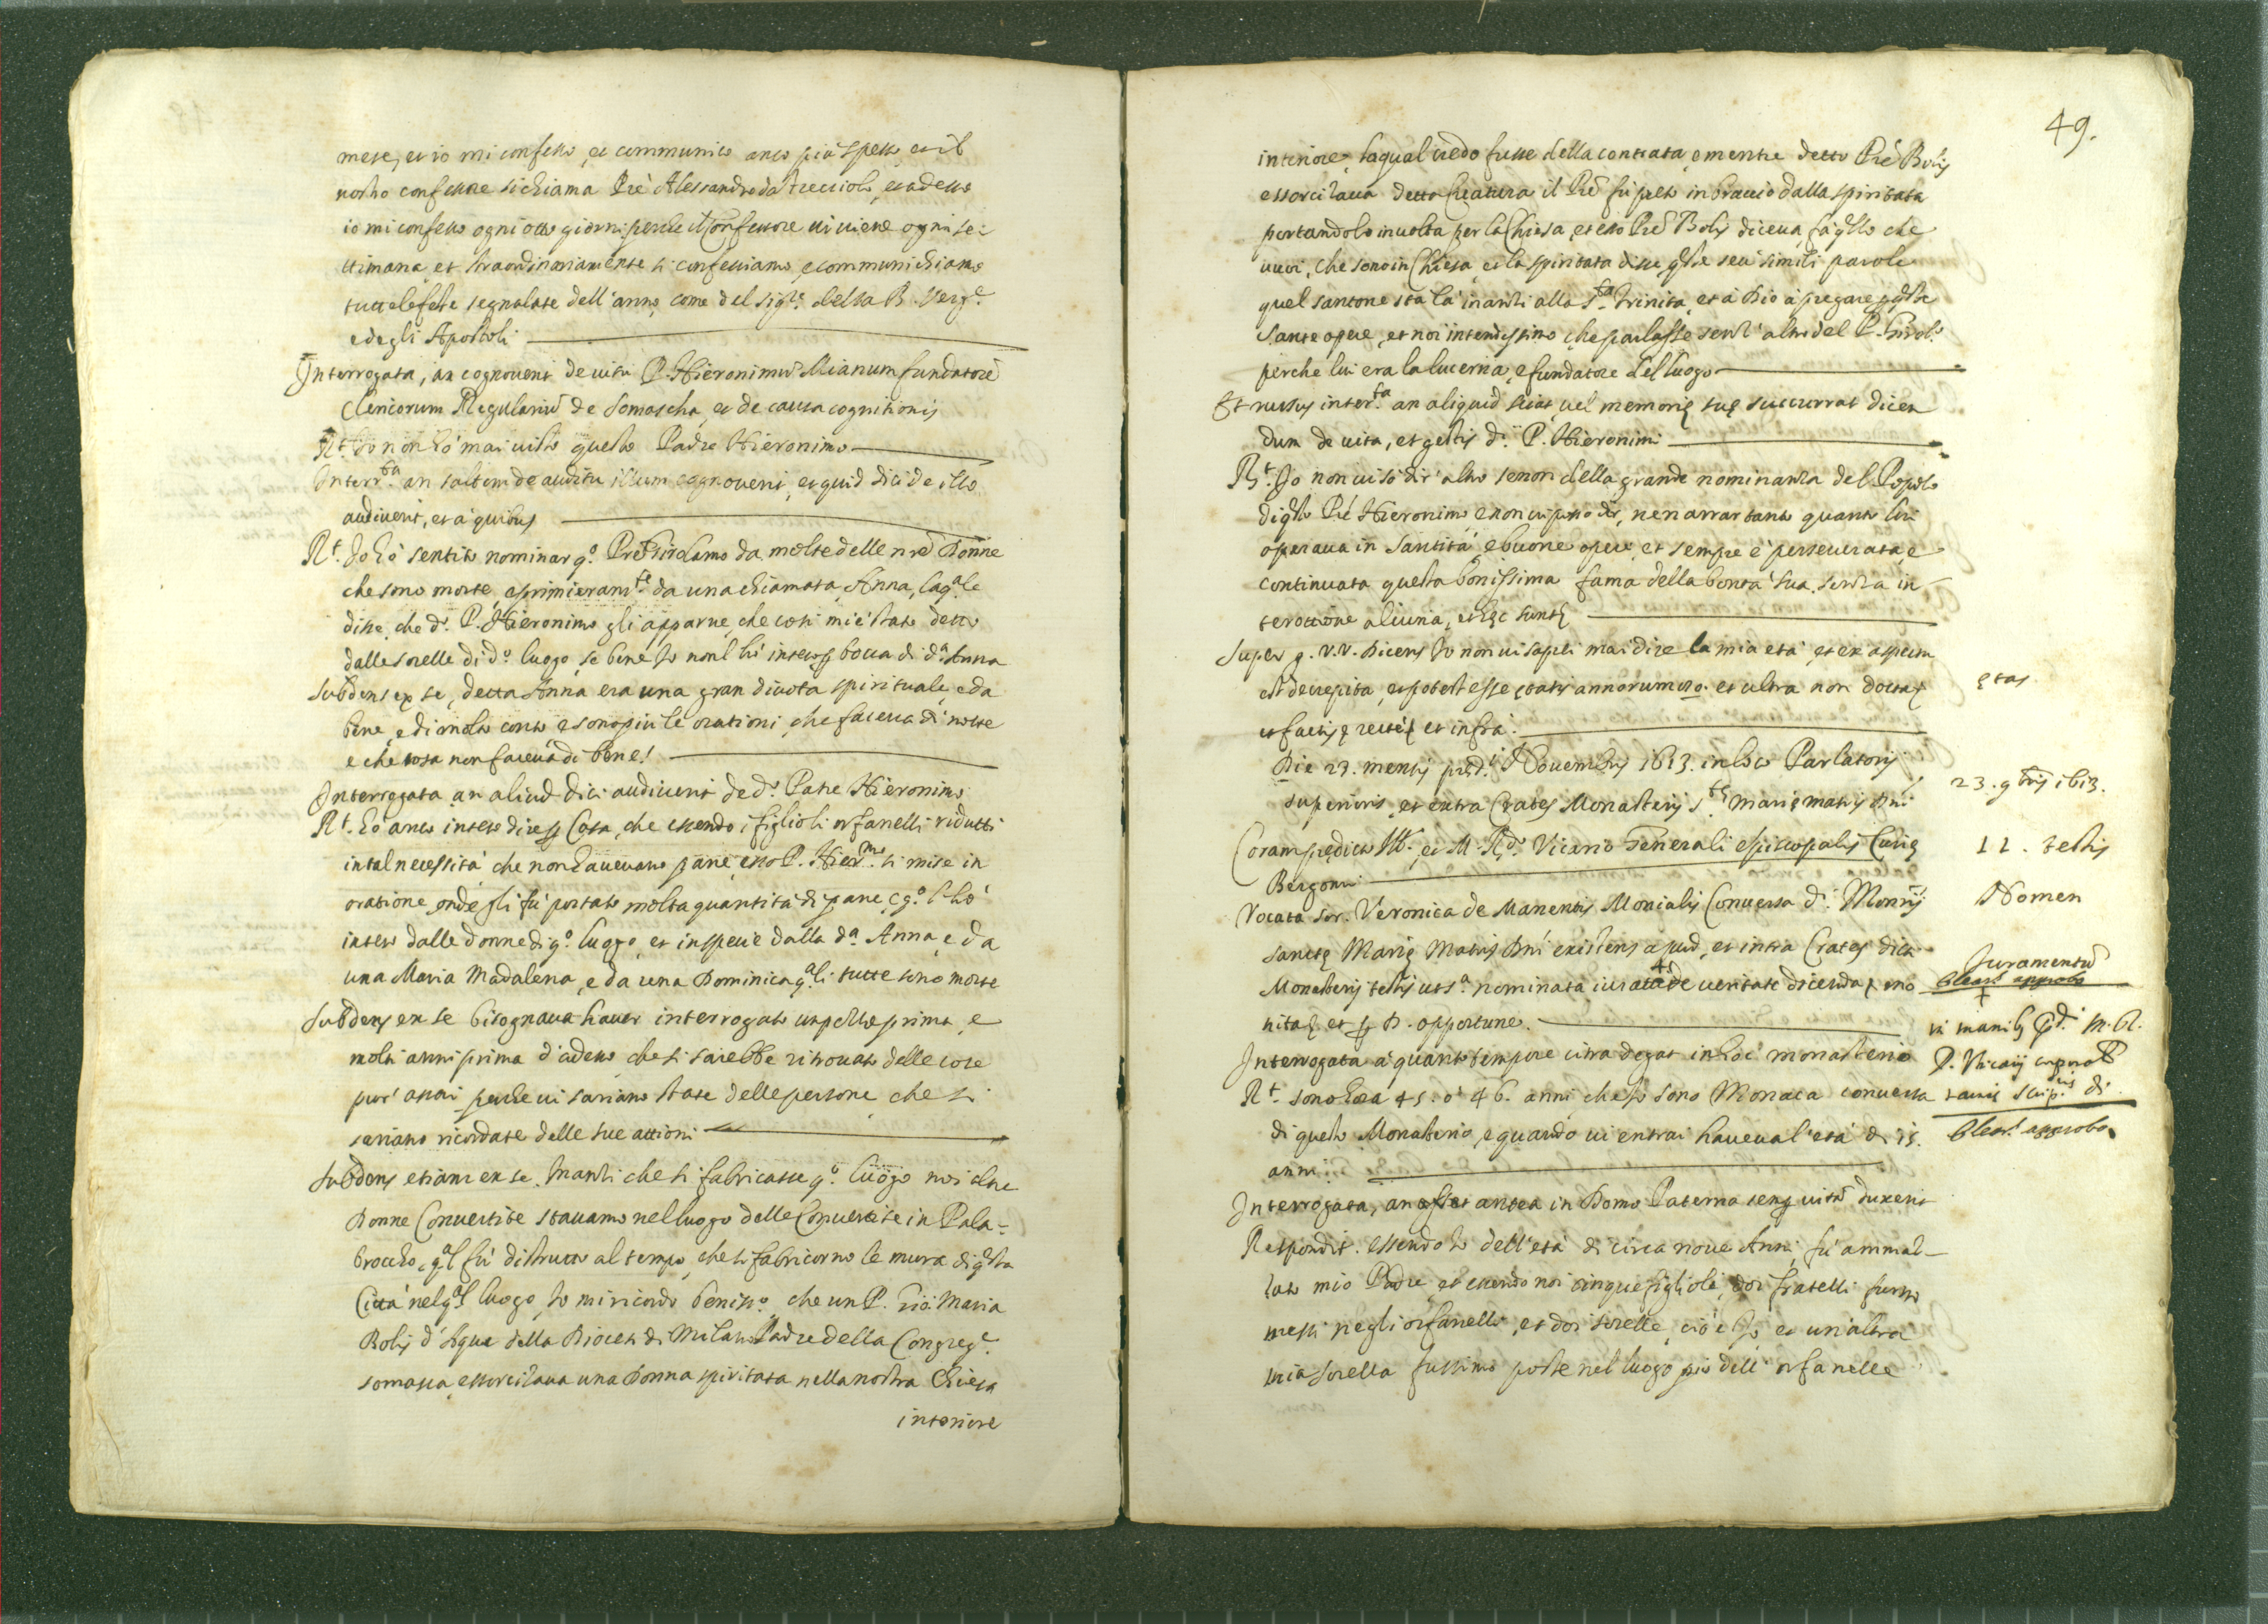 mese, et io mi confesso, et communico anco più spesso, et il
nostro confessore si chiama Prè Alessandro da Trecciolo, et adesso
io mi confesso ogni otto giorni perche il Confessore vi viene ogni se=
ttimana, et straordinariamente si confessiamo, e communichiamo
tutte le feste segnalate dell'anno, come del Sig.re della B. Verg.e
e degli Apostoli
Interrogata, an cognoverit de visu P. Hieronimũ Mianum fundatorẽ
Clericorum Regulariũ de Somascha, et de causa cognitionis
R.t Io non hò mai visto questo Padre Hieronimo
Interr.ta an saltem de auditu illum cognoverit, et quid dici de illo
audiverit, et à quibus
R.t Io hò sentito nominar q.o Prè Girolamo da molte delle nrẽ Donne
che sono morte, e primieram.te da una chiamata Anna, la q.ale
disse, che d.o P. Hieronimo gli apparve, che così mi è stato detto
dalle sorelle di d.o luogo, se bene Io non l'hò inteso p bocca di d.a Anna
Subdens ex se, detta Anna era una gran divota spirituale, e da
bene, e di molto conto e sono più le orationi, che faceva di notte
e che cosa non faceva di bene!
Interrogata an aliud dici audiverit de d.o Patre Hieronimo
R.t hò anco inteso dire p Cosa, che essendo i figlioli orfanelli ridutti
in tal necessità che non havevano pane, esso P. Hier.mo si mise in
oratione, onde gli fù portato molta quantità di pane, e q.o l'hò
inteso dalle donne di q.o luogo, et in specie dalla d.a Anna, e da
una Maria Madalena, e da una Dominica q.ali tutte sono morte
Subdens ex se bisognava haver interrogato un pezzo prima, e
molti anni prima d'adesso, che si sarebbe ritrovato delle cose
pur' assai perche vi sariano state delle persone, che si
sariano ricordate delle sue attioni
Subdens etiam ex se. Inanti che si fabricasse q.o luogo noi altre
Donne Convertite stavamo nel luogo delle Convertite in Pala=
brocco, q.al fù distrutto al tempo, che si fabricorno le mura di q.sta
Città nel q.al luogo Io mi ricordo beniss.o che un P. Gio: Maria
Bolis d'Aqua della Diocesi di Milano Padre della Congreg.e
somasca, essorcizava una Donna spiritata nella nostra Chiesa
interiore
49.
interiore, la qual credo fusse della contrata, e mentre detto Prè Bolis
essorcizava detta Creatura il Prè fù preso in braccio dalla spiritata
portandolo in volta per la Chiesa, et esso Prè Bolis diceva, fà q.llo che
vuoi, che sono in Chiesa, et la spiritata disse q.ste seu simili parole
quel santone stà là inanti alla S.ta Trinita, et à Dio à pregare p q.ste
Sante opere, et noi intendessimo, che parlasse senz'altro del P. Girol.o
perche lui era la lucerna, e fundatore del luogo
Et rursus inter.ta an aliquid sciat, vel memorię suę succurrat dicen
dum de vita, et gestis d.i P. Hieronimi
R.t Io non vi sò dir' altro senon della grande nominanza del Popolo
di q.sto Prè Hieronimo, e non vi posso dir, ne narrar tanto quanto lui
operava in Santità, e buone opere, et sempre è perseverata, e
continuata questa bonissima fama della bontà sua, senza in
terottione alcuna, et hęc sunt
Super g. v.v. Dicens Io non vi saprei mai dire la mia età, et ex aspectu
est decrepita, et potest esse ętatis annorum et ultra non docta
et factis, p recte et infra.
ętas
Die 23. mensis pręd.i Novembris 1613. in loco Parlatorij
superioris, et extra Crates Monasterij S.tę Marię matris Dni
23. gbris 1613.
Coram prędicto Ill. et M. R.do Vicario Generali episcopalis Curię
Bergomi
11. testis
Vocata Sor. Veronica de Manentis Monialis Conversa d.i Monrij
Nomen
Sanctę Marię Matris Dni existens apud, et intra Crates dicti
Monasterij testis ut s.a nominata, iurata de veritate dicenda, mo
nita et p D. opportune.
Juramentũ
et approbo
in manib. p.di M. R.
D. Vicarij corporal
tactis Scrip.ris di
approbo
Interrogata à quanto tempore citra degat in hoc monasterio
R.t sono hora 45. ò 46. anni, che Io sono Monaca conversa
di questo Monasterio, e quando vi entrai haveva l'età di 15.
anni
Interrogata, an antea in Domo Paterna semp vitã duxerit
Respondit. essendo Io dell'età di circa nove Anni, fù ammal-
lato mio Padre, et essendo noi cinque figlioli, doi fratelli furno
messi negli orfanelli, et doi sorelle, cioè Io, et un'altra
mia sorella fussimo poste nel luogo pio dell' orfanelle